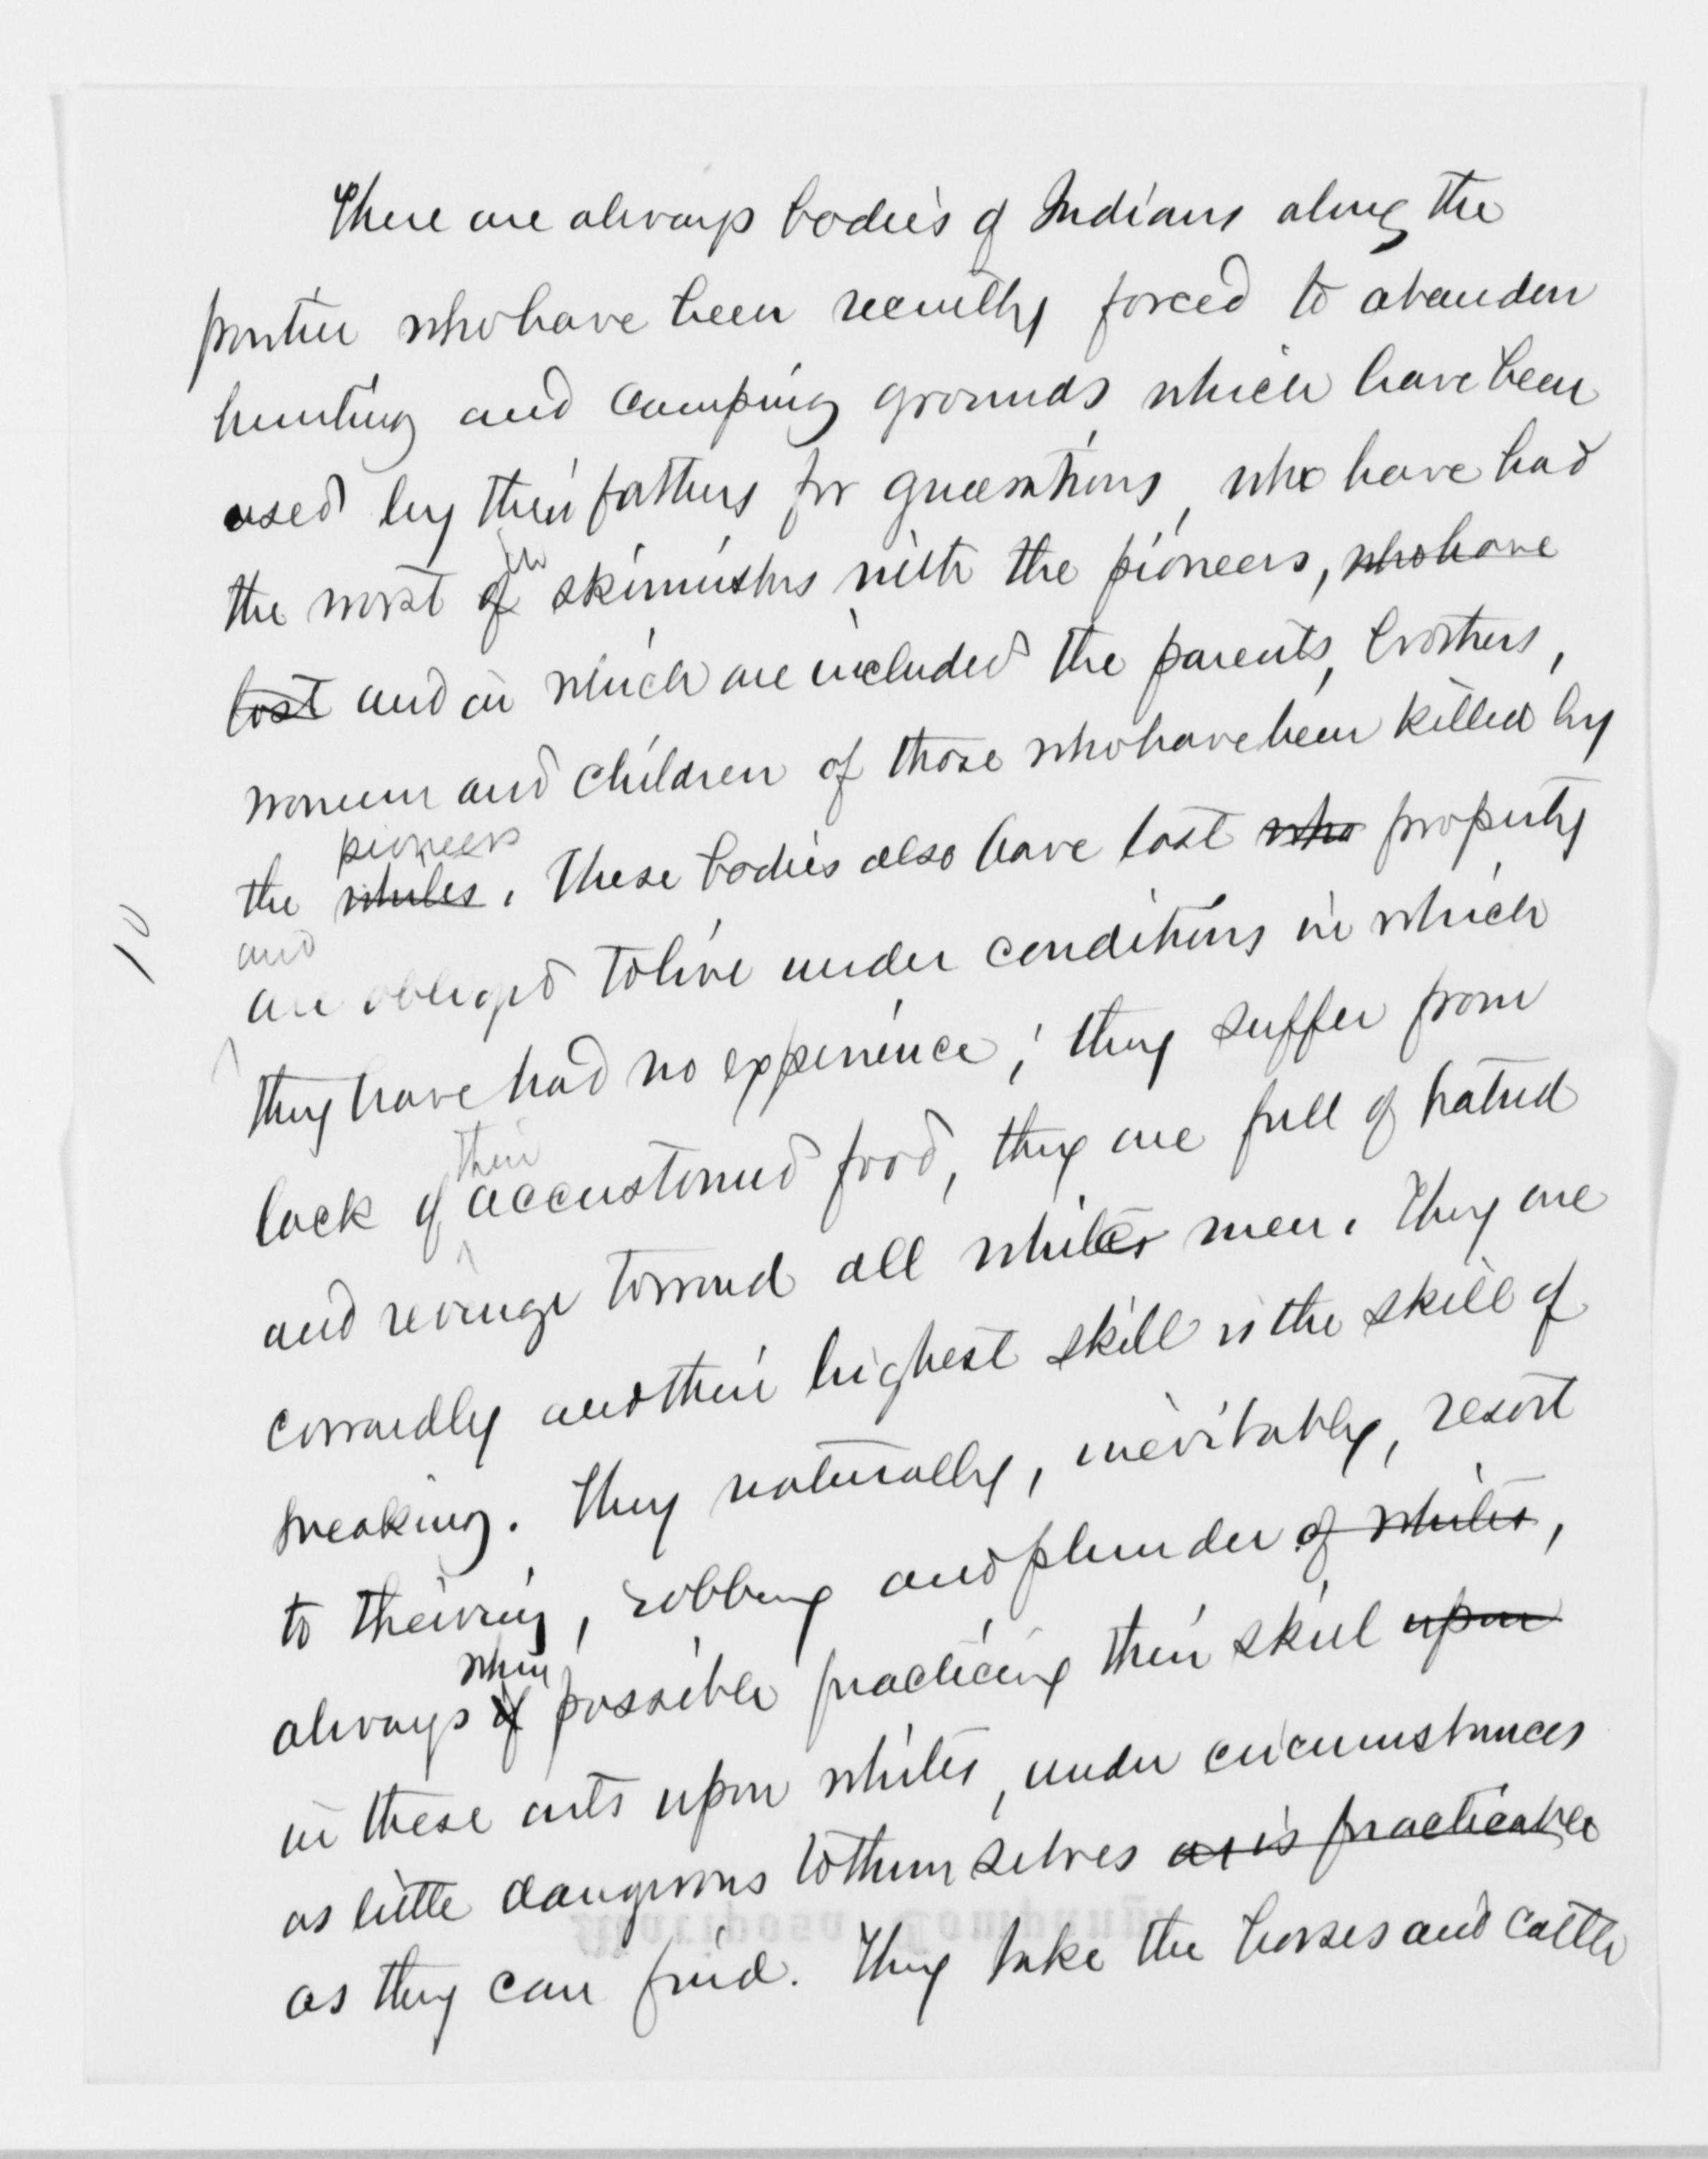 There are always bodies of Indians along the
frontier who have been recently forced to abandon
hunting and camping grounds which have been
used by their fathers for generations, who have had
the worst of in skirmishes with the pioneers, who have
lost and in which are included the parents, brothers,
women and children of those who have been killed by
pioneers
the whites. These bodies also have lost who property
and
are obliged to live under conditions in which
10
they have had no experience; they suffer from
their
lack of accustomed food, they are full of hatred
and revenge toward all whites men. They are
cowardly and their highest skill is the skill of
sneaking. They naturally, inevitably, resort
to theiving, robbing and plunder of whites,
when
always if possible practicing their skill upon
in these arts upon whites, under circumstances
as little dangerous to themselves as is practicable
as they can find. They take the horses and cattle